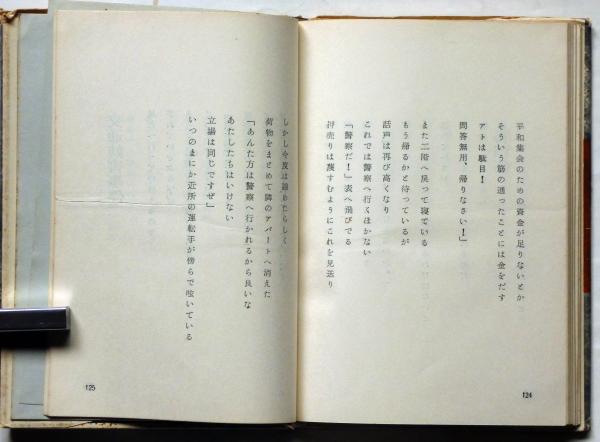 平和集会のための資金が足りないとか
そういう筋の通ったことには金をだす
アトは駄目！
問答無用、帰りなさい！」
また二階へ戻って寝ている
もう帰るかと待っているが
話声は再び高くなり
これでは警察へ行くほかない
「警察だ！」表へ飛びでる
押売りは蔑すむようにこれを見送り
124
しかし今度は諦めたらしく
荷物をまとめて隣のアパートへ消えた
「あんた方は警察へ行かれるから良いな
あたしたちはいけない
立場は同じですぜ」
いつのまにか近所の運転手が傍らで呟いている
125